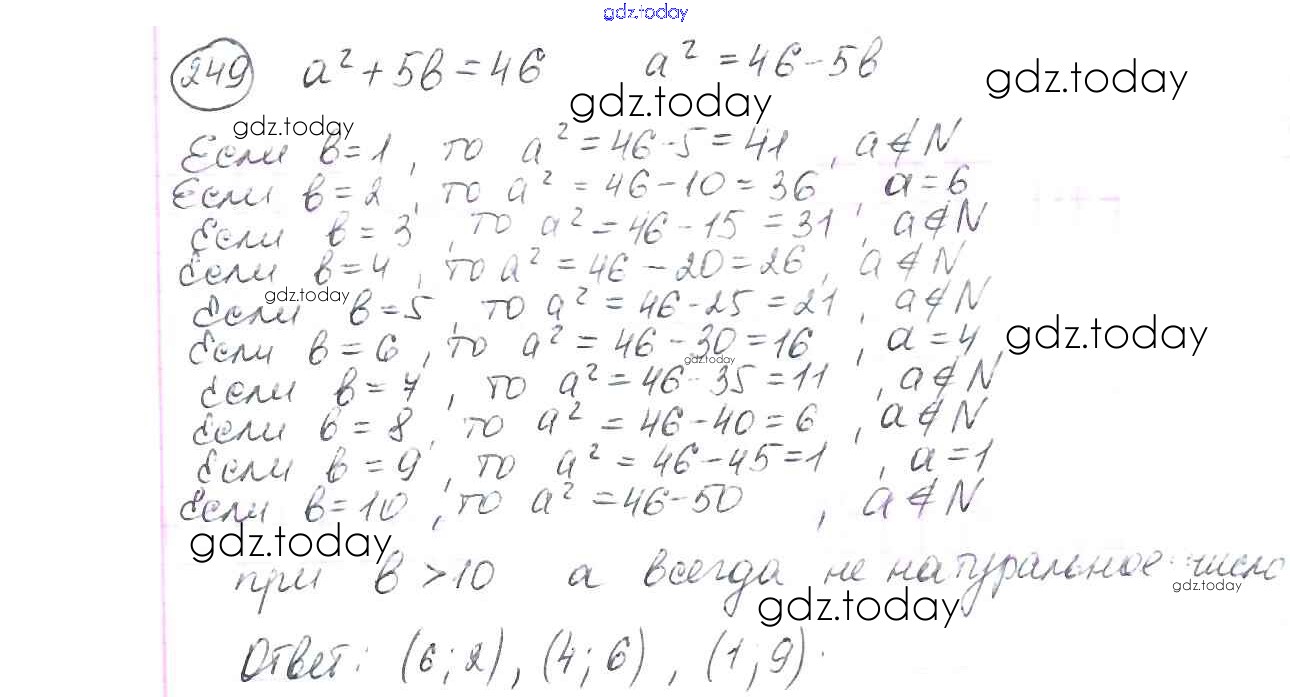 gdz.today
249 a² + 5в = 46 a² = 46 - 5в gdz.today
gdz.today
gdz.today
Если в = 1, то a² = 46 - 5 = 41, a ∉ N
Если в = 2, то a² = 46 - 10 = 36, a = 6
Если в = 3, то a² = 46 - 15 = 31, a ∉ N
Если в = 4, то a² = 46 - 20 = 26, a ∉ N
gdz.today
Если в = 5, то a² = 46 - 25 = 21, a ∉ N
Если в = 6, то a² = 46 - 30 = 16, a = 4 gdz.today
gdz.today
Если в = 7, то a² = 46 - 35 = 11, a ∉ N
Если в = 8, то a² = 46 - 40 = 6, a ∉ N
Если в = 9, то a² = 46 - 45 = 1, a = 1
Если в = 10, то a² = 46 - 50, a ∉ N
gdz.today
при в > 10 a всегда не натуральное число
gdz.today
gdz.today
Ответ: (6; 2), (4; 6), (1; 9).